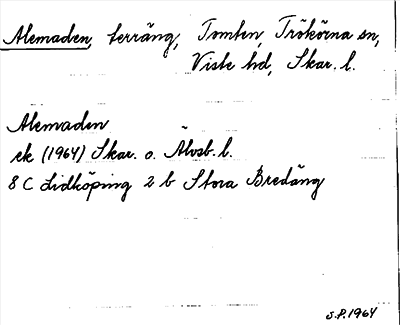 Alemaden, terräng, Tomten, Trökörna sn,
Viste hd, Skar. l.
Alemaden
ek (1964) Skar. o. Älvsb. l.
8 C Lidköping 2 b Stora Bredäng
S.P. 1964